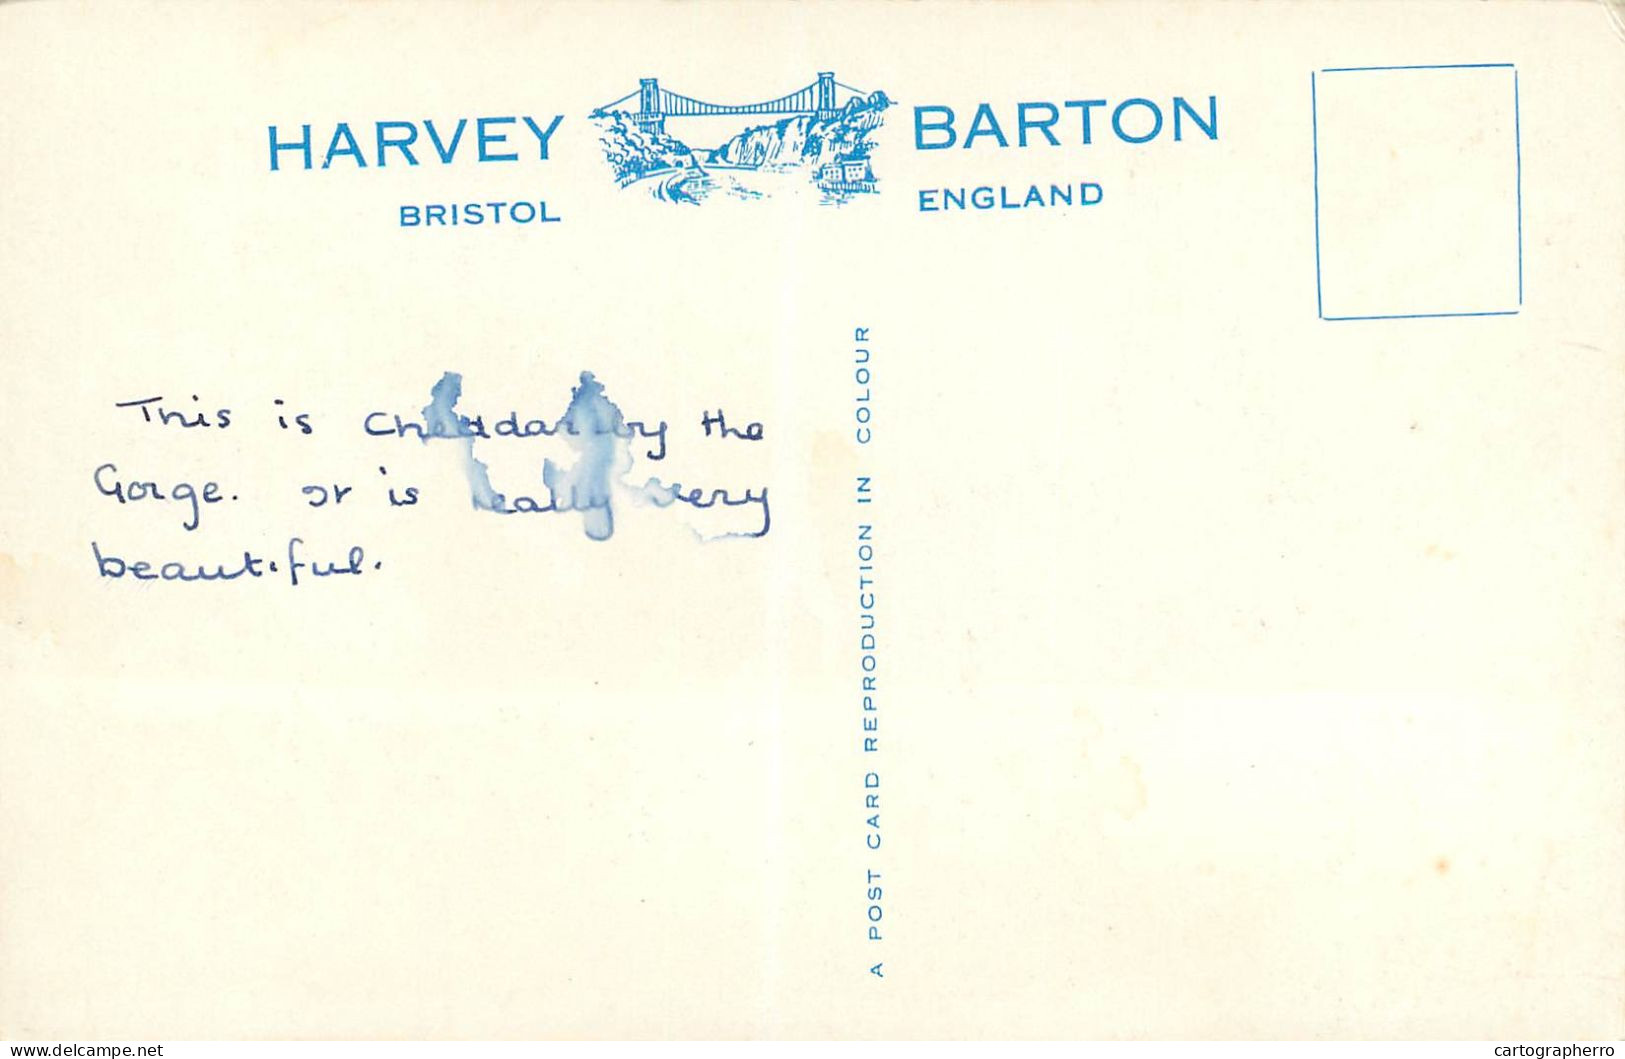 HARVEY BARTON
BRISTOL ENGLAND
This is Cheddar by the
Gorge. It is really very
beautiful.
A POST CARD REPRODUCTION IN COLOUR
www.delcampe.net
cartographerro